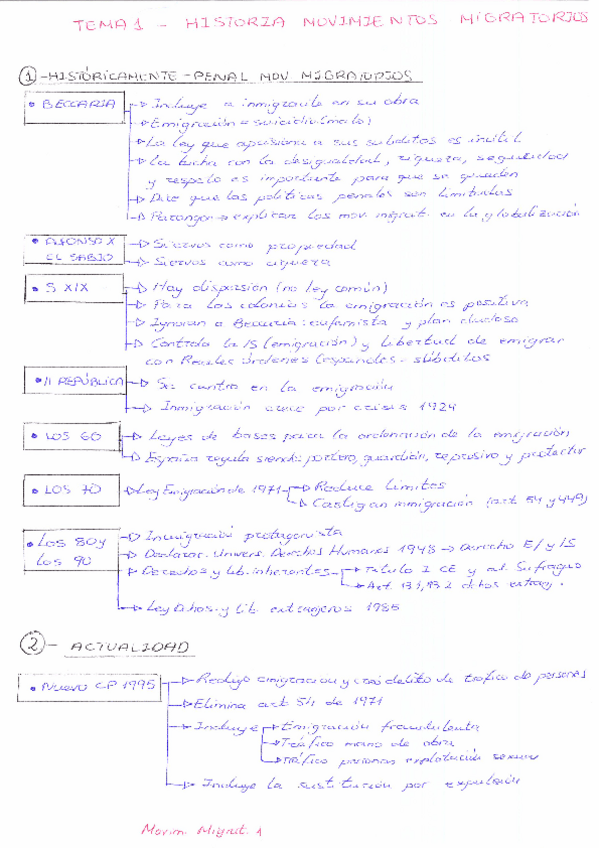 TEMA 1 - HISTORIA MOVIMIENTOS MIGRATORIOS
1 - HISTÓRICAMENTE - PENAL MOV MIGRATORIOS
• BECCARIA
Incluye a inmigrante en su obra
Emigración = suicidio (malo)
La ley que aprisiona a sus súbditos es inútil
La lucha con la desigualdad, riqueza, seguridad
y respeto es importante para que se queden
Dice que las políticas penales son limitadas
Parangon → explicar los mov migrat. en la globalización
• ALFONSO X
EL SABIO
Siervos como propiedad
Siervos como riqueza
• S XIX
Hay dispersión (no ley común)
Para las colonias la emigración es positiva
Ignoran a Beccaria: eufemista y plan dudoso
Controla la /S (emigración) y libertad de emigrar
con Reales Órdenes (españoles: súbditos
• II REPÚBLICA
Se centra en la emigración
Inmigración crece por crisis 1924
• LOS 60
Leyes de bases para la ordenación de la emigración
España regula siendo portero, guardián, represivo y protector
• LOS 70
Ley Emigración de 1971
Reduce límites
Castigan inmigración (art 54 y 449)
• Los 80 y
los 90
Inmigración protagonista
Declarac. Univers. Derechos Humanos 1948 → Derecho E/ y /S
Derechos y lib. inherentes
Título I CE y al Sufragio
Art. 131, 132 dchos extranj.
Ley Dchos. y lib. extranjeros 1985
2 - ACTUALIDAD
• Nuevo CP 1995
Redujo emigración y creó delito de tráfico de personas
Elimina art 54 de 1971
Incluye
Emigración fraudulenta
Tráfico mano de obra
Tráfico personas explotación sexual
Incluye la sustitución por expulsión
Movim. Migrat. 1